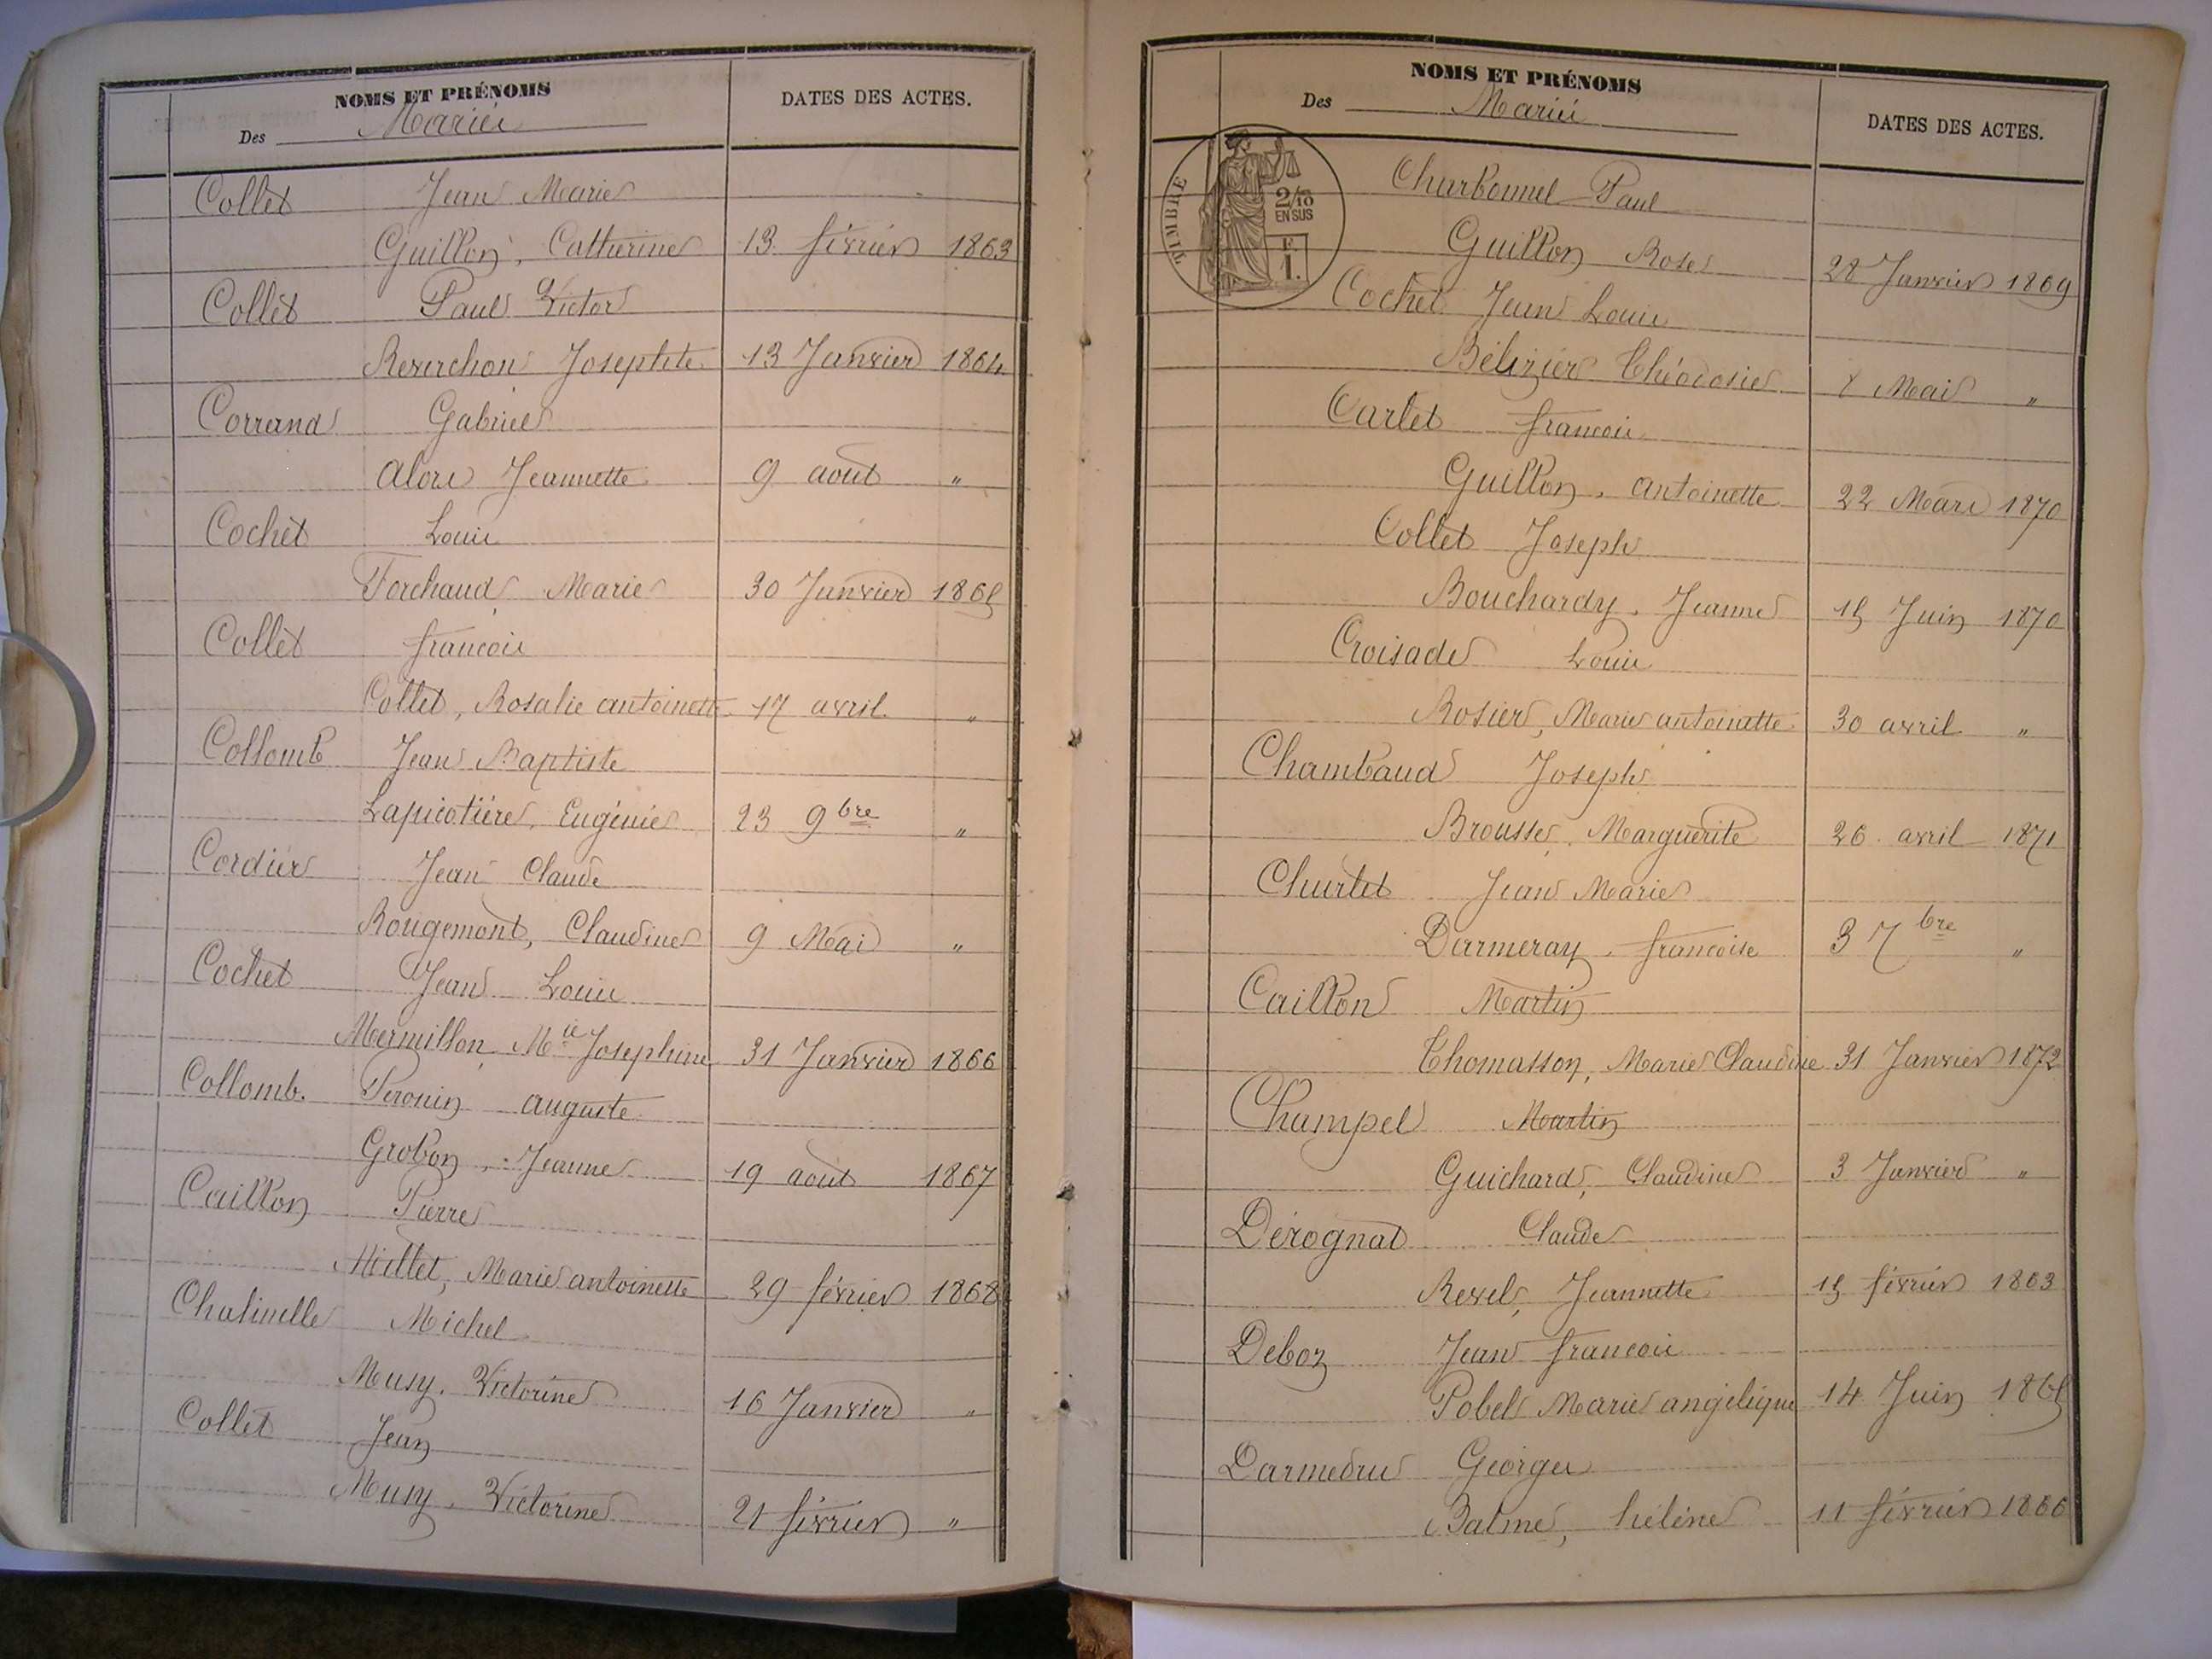 NOMS ET PRÉNOMS
Des Mariés
DATES DES ACTES.
Collet Jean Marie
Guillon, Catherine 13 février 1863
Collet Paul Victor
Reverchon Josephte 13 Janvier 1864
Corrand Gabriel
Alou Jeannette 9 aout "
Cochet Louis
Forchaud, Marie 30 Janvier 1865
Collet francois
Collet, Rosalie antoinette 17 avril "
Collomb Jean Baptiste
Lapicotière, Eugénie 23 9bre "
Cordier Jean Claude
Rougemont, Claudine 9 Mai "
Cochet Jean Louis
Mermillon, Mie Josephine 31 Janvier 1866
Collomb. Peronin auguste
Grobon, Jeanne 19 aout 1867
Caillon Pierre
Millet, Marie antoinette 29 février 1868
Chalinelle Michel
Musy, Victorine 16 Janvier "
Collet Jean
Musy, Victorine 21 février "
NOMS ET PRÉNOMS
Des Mariés
DATES DES ACTES.
TIMBRE
2/10
EN SUS
F
1.
Charbonnel Paul
Guillon Rose 28 Janvier 1869
Cochet Jean Louis
Bélizier Théodosie 8 Mai "
Carlet francois
Guillon, antoinette 22 Mars 1870
Collet Joseph
Bouchardy, Jeanne 15 Juin 1870
Croisade Louis
Rosier, Marie antoinette 30 avril "
Chambaud Joseph
Brousse, Marguerite 26 avril 1871
Churlet Jean Marie
Darmeray, francoise 3 7bre "
Caillon Martin
Thomasson, Marie Claudine 31 Janvier 1872
Champel Martin
Guichard, Claudine 3 Janvier "
Dérognat Claude
Revel, Jeannette 15 février 1863
Deboz Jean francois
Pobel Marie angélique 14 Juin 1865
Darmedru Georges
Balme, hélène 11 février 1866